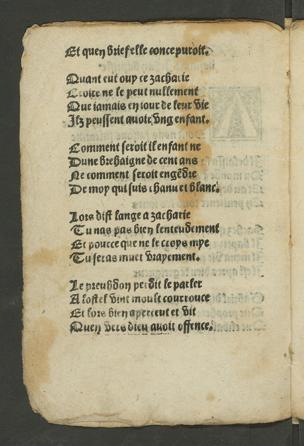 Et quen brief elle conceputoit.
Quant eut ouy ce zacharie
Croire ne le peut nullement
Que iamais en iour de leur vie
Ilz peussent auoir vng enfant.
Comment seroit il enfant ne
Dune brehaigne de cent ans
Ne comment seroit engēdre
De moy qui suis chanu et blanc.
Lors dist lange a zacharie
Tu nas pas bien lentendement
Et pource que ne le croys mye
Tu seras muet vrayement.
Le preuhdon perdit le parler
A lostel vint moult courrouce
Et lors bien apperceut et vit
Quen vers dieu auoit offence.